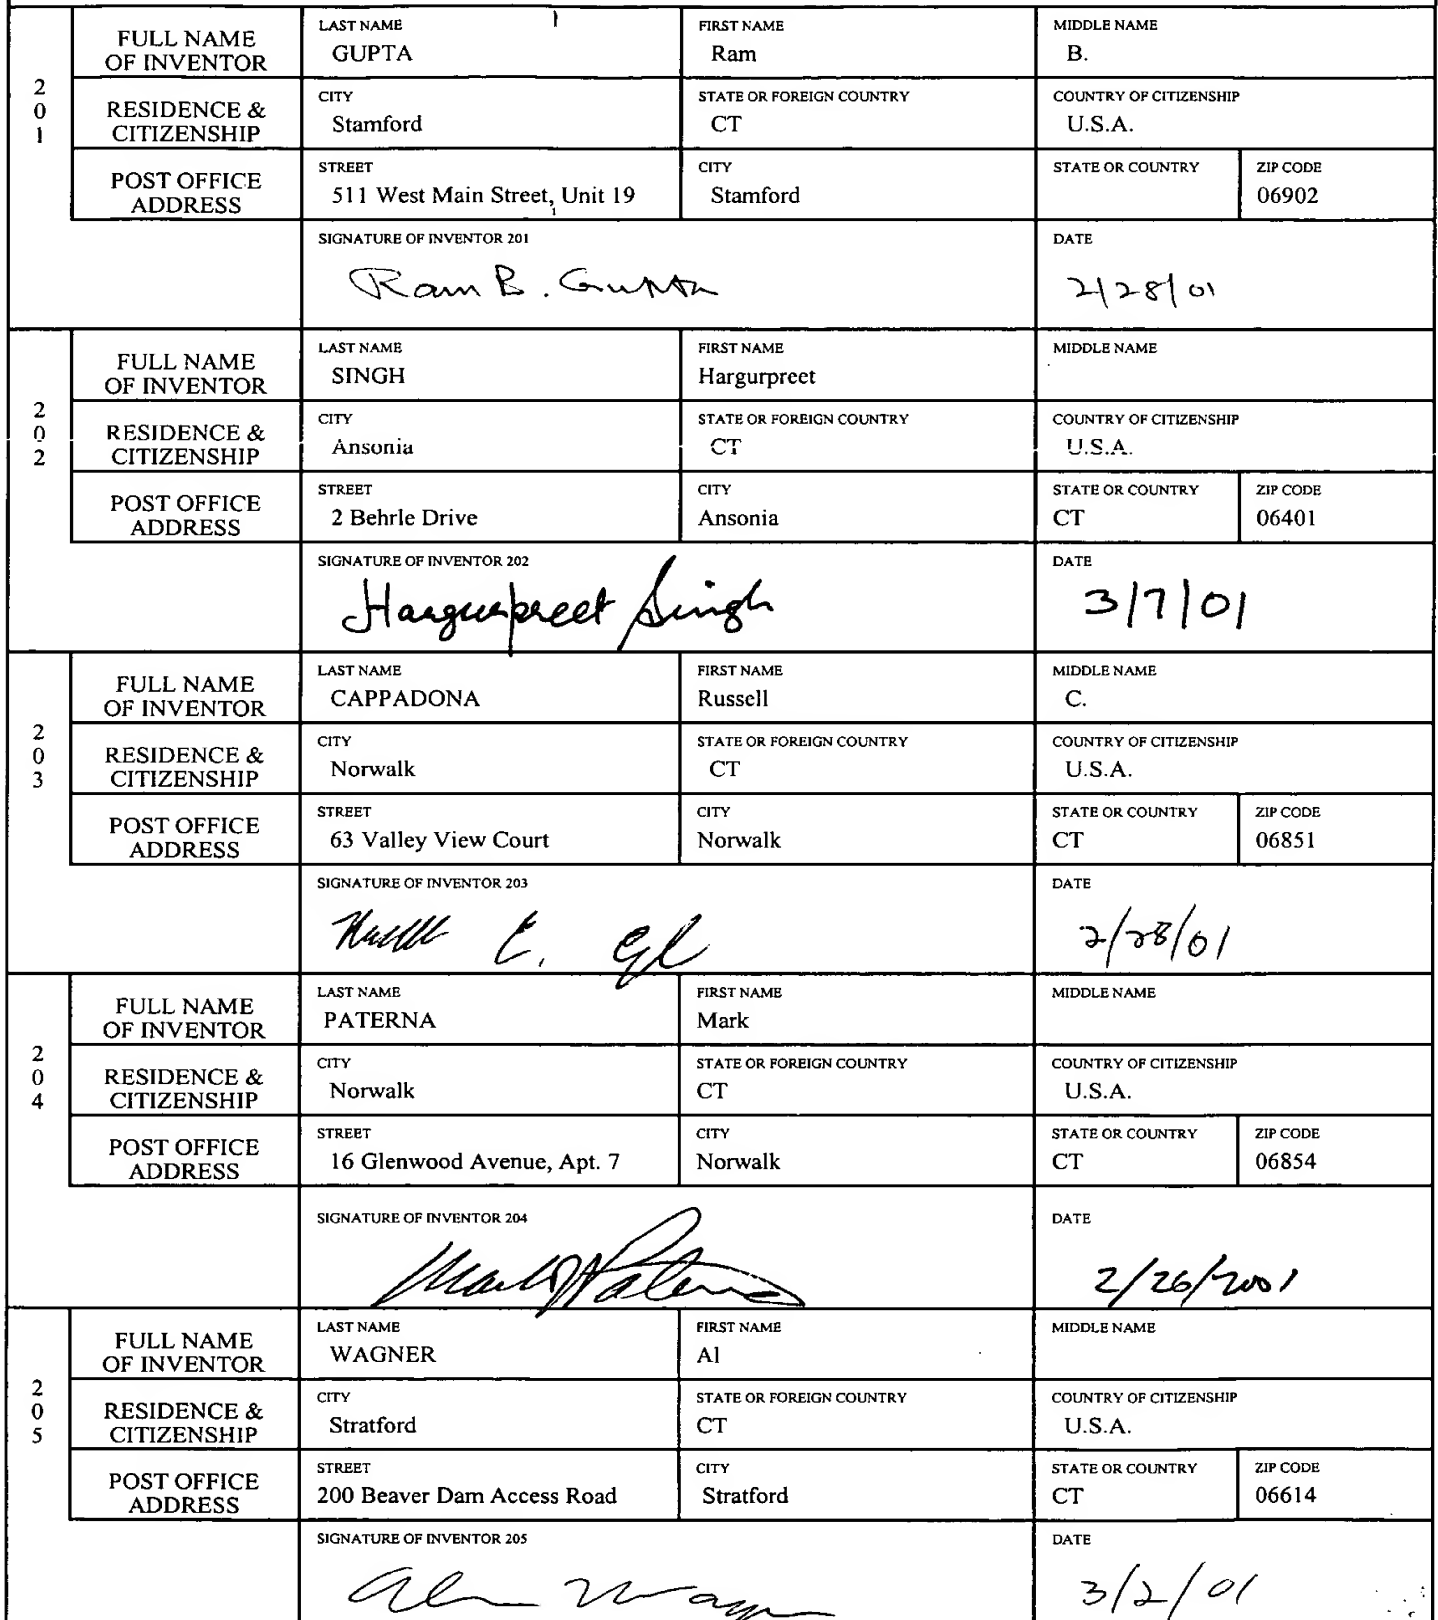 201
FULL NAME OF INVENTOR
LAST NAME GUPTA
FIRST NAME Ram
MIDDLE NAME B.
RESIDENCE & CITIZENSHIP
CITY Stamford
STATE OR FOREIGN COUNTRY CT
COUNTRY OF CITIZENSHIP U.S.A.
POST OFFICE ADDRESS
STREET 511 West Main Street, Unit 19
CITY Stamford
STATE OR COUNTRY
ZIP CODE 06902
SIGNATURE OF INVENTOR 201
Ram B. Gupta
DATE
2/28/01
202
FULL NAME OF INVENTOR
LAST NAME SINGH
FIRST NAME Hargurpreet
MIDDLE NAME
RESIDENCE & CITIZENSHIP
CITY Ansonia
STATE OR FOREIGN COUNTRY CT
COUNTRY OF CITIZENSHIP U.S.A.
POST OFFICE ADDRESS
STREET 2 Behrle Drive
CITY Ansonia
STATE OR COUNTRY CT
ZIP CODE 06401
SIGNATURE OF INVENTOR 202
Hargurpreet Singh
DATE
3/7/01
203
FULL NAME OF INVENTOR
LAST NAME CAPPADONA
FIRST NAME Russell
MIDDLE NAME C.
RESIDENCE & CITIZENSHIP
CITY Norwalk
STATE OR FOREIGN COUNTRY CT
COUNTRY OF CITIZENSHIP U.S.A.
POST OFFICE ADDRESS
STREET 63 Valley View Court
CITY Norwalk
STATE OR COUNTRY CT
ZIP CODE 06851
SIGNATURE OF INVENTOR 203
DATE
2/28/01
204
FULL NAME OF INVENTOR
LAST NAME PATERNA
FIRST NAME Mark
MIDDLE NAME
RESIDENCE & CITIZENSHIP
CITY Norwalk
STATE OR FOREIGN COUNTRY CT
COUNTRY OF CITIZENSHIP U.S.A.
POST OFFICE ADDRESS
STREET 16 Glenwood Avenue, Apt. 7
CITY Norwalk
STATE OR COUNTRY CT
ZIP CODE 06854
SIGNATURE OF INVENTOR 204
DATE
2/26/2001
205
FULL NAME OF INVENTOR
LAST NAME WAGNER
FIRST NAME Al
MIDDLE NAME
RESIDENCE & CITIZENSHIP
CITY Stratford
STATE OR FOREIGN COUNTRY CT
COUNTRY OF CITIZENSHIP U.S.A.
POST OFFICE ADDRESS
STREET 200 Beaver Dam Access Road
CITY Stratford
STATE OR COUNTRY CT
ZIP CODE 06614
SIGNATURE OF INVENTOR 205
DATE
3/2/01